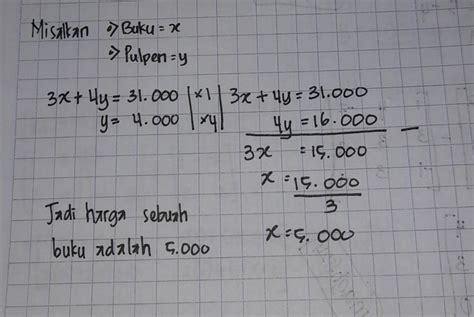 Misalkan => Buku = x
=> Pulpen = y
3x + 4y = 31.000 | x1 | 3x + 4y = 31.000
y = 4.000 | x4 | 4y = 16.000 -
3x = 15.000
x = 15.000
3
x = 5.000
Jadi harga sebuah
buku adalah 5.000